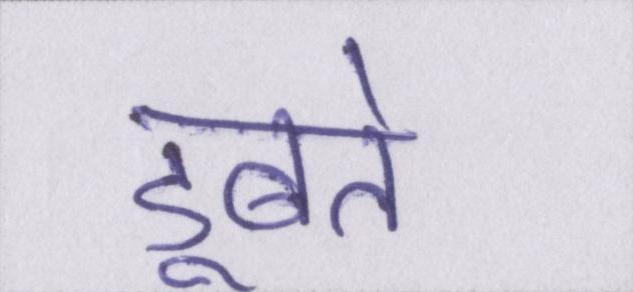 डूबते